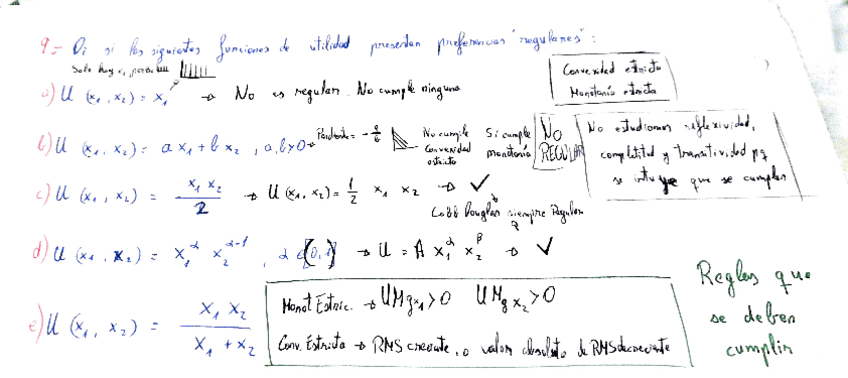 9.- Di si las siguientes funciones de utilidad presentan preferencias "regulares":
Solo hay x₁
Convexidad estricta
Monotonía estricta
a) U (x₁, x₂) = x₁ → No es regular. No cumple ninguna
b) U (x₁, x₂) = a x₁ + b x₂, a,b>0 → Pendiente = - a/b No cumple Convexidad estricta Si cumple monotonía NO REGULAR
No estudiamos reflexividad, completitud y transitividad pq se intuye que se cumplen
c) U (x₁, x₂) = x₁ x₂ / 2 → U(x₁, x₂) = 1/2 x₁ x₂ → ✓
Cobb Douglas siempre Regular
d) U (x₁, x₂) = x₁^α x₂^α-1, α ∈ [0,1] → U = A x₁^α x₂^β → ✓
e) U (x₁, x₂) = x₁ x₂ / x₁ + x₂
Monot Estric. → UMgx₁>0 UMgx₂>0
Conv. Estricta → RMS creciente, o valor absoluto de RMS decreciente
Reglas que
se deben
cumplir